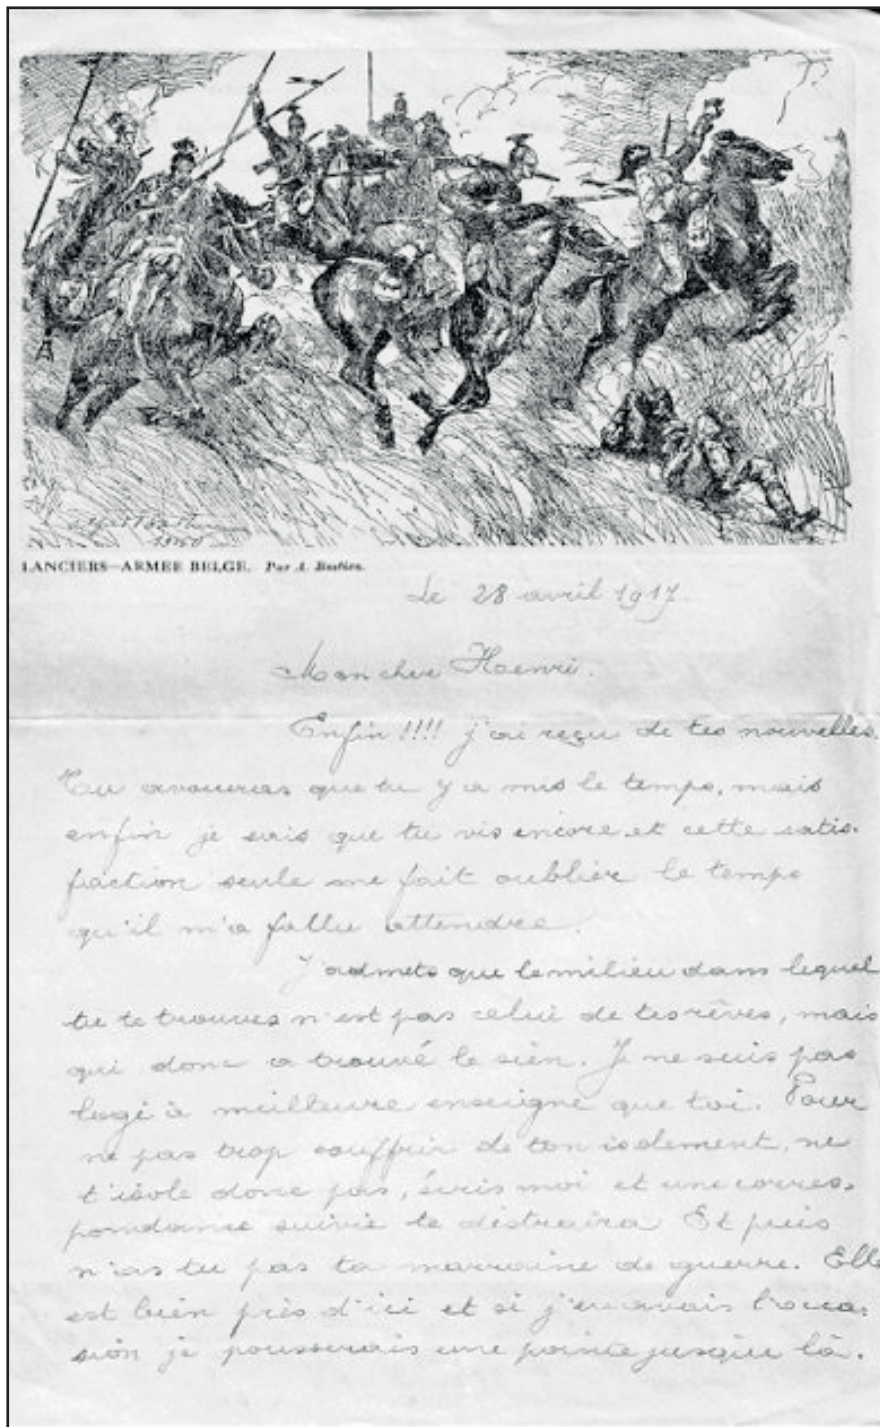 LANCIERS—ARMEE BELGE. Par A. Bastien.
Le 28 avril 1917.
Mon cher Henri.
Enfin !!!! j'ai reçu de tes nouvelles.
Tu avoueras que tu y a mis le temps, mais
enfin je sais que tu vis encore et cette satis-
faction seule me fait oublier le temps
qu'il m'a fallu attendre.
J'admets que le milieu dans lequel
tu te trouves n'est pas celui de tes rêves, mais
qui donc a trouvé le sien. Je ne suis pas
logé à meilleure enseigne que toi. Pour
ne pas trop souffrir de ton isolement, ne
t'isole donc pas, écris moi et une corres-
pondance suivie te distraira. Et puis
n'as tu pas ta marraine de guerre. Elle
est bien près d'ici et si j'en avais l'occa-
sion je pousserais une pointe jusque là.